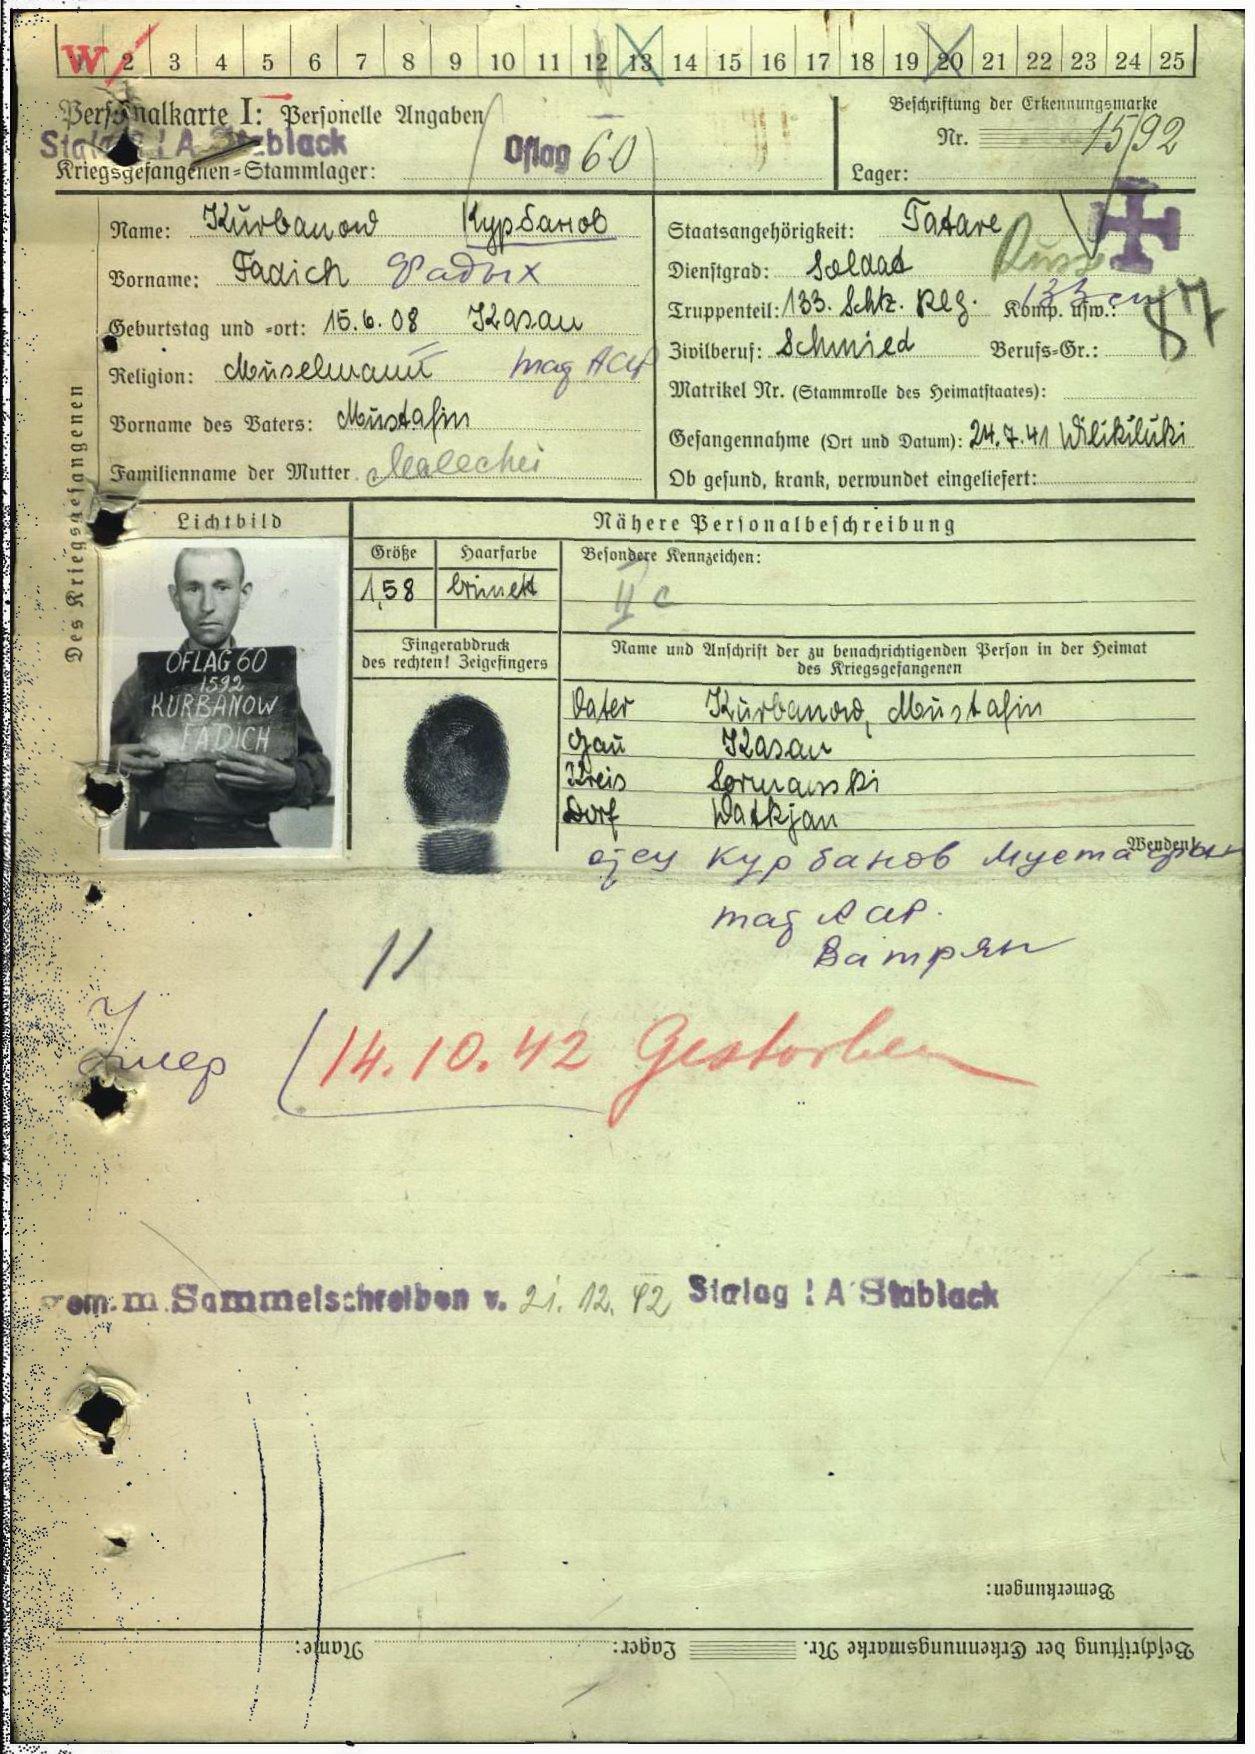 W 2 3 4 5 6 7 8 9 10 11 12 13 14 15 16 17 18 19 20 21 22 23 24 25
Personalkarte I: Personelle Angaben
Stalag I A Stablack
Kriegsgefangenen-Stammlager: Oflag 60
Beschriftung der Erkennungsmarke
Nr. 1592
Lager:
Des Kriegsgefangenen
Name: Kurbanow Курбанов
Vorname: Fadich Фадых
Geburtstag und -ort: 15.6.08 Kasan
Religion: Muselmann
Vorname des Vaters: Mustafin
Familienname der Mutter
Staatsangehörigkeit: Tatare Russe
Dienstgrad: Soldat
Truppenteil: 133. Schtz. Reg. Komp. usw.: 133 сп
87
Zivilberuf: Schmied Berufs-Gr.:
Matrikel Nr. (Stammrolle des Heimatstaates):
Gefangennahme (Ort und Datum): 24.7.41 Wilikiluki
Ob gesund, krank, verwundet eingeliefert:
Lichtbild
OFLAG 60
1592
KURBANOW
FADICH
Nähere Personalbeschreibung
Größe Haarfarbe Besondere Kennzeichen:
1,58 brünett
II c
Fingerabdruck
des rechten! Zeigefingers
Name und Anschrift der zu benachrichtigenden Person in der Heimat
des Kriegsgefangenen
Vater Kurbanow, Mustafin
Gau Kasan
Kreis Sormanski
Dorf Watkjan
Wenden!
отец Курбанов Мустафин
тат АССР.
Ватрян
11
Умер 14.10.42 Gestorben
gem. m. Sammelschreiben v. 21.12.42 Stalag I A Stablack
Bemerkungen:
Beschriftung der Erkennungsmarke Nr. Lager: Name: